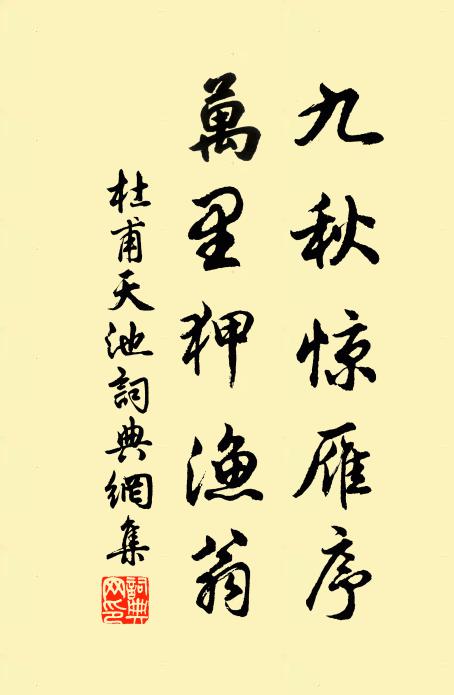 九秋惊雁序
萬里狎漁翁
杜甫天池詞典網集
詞典網印